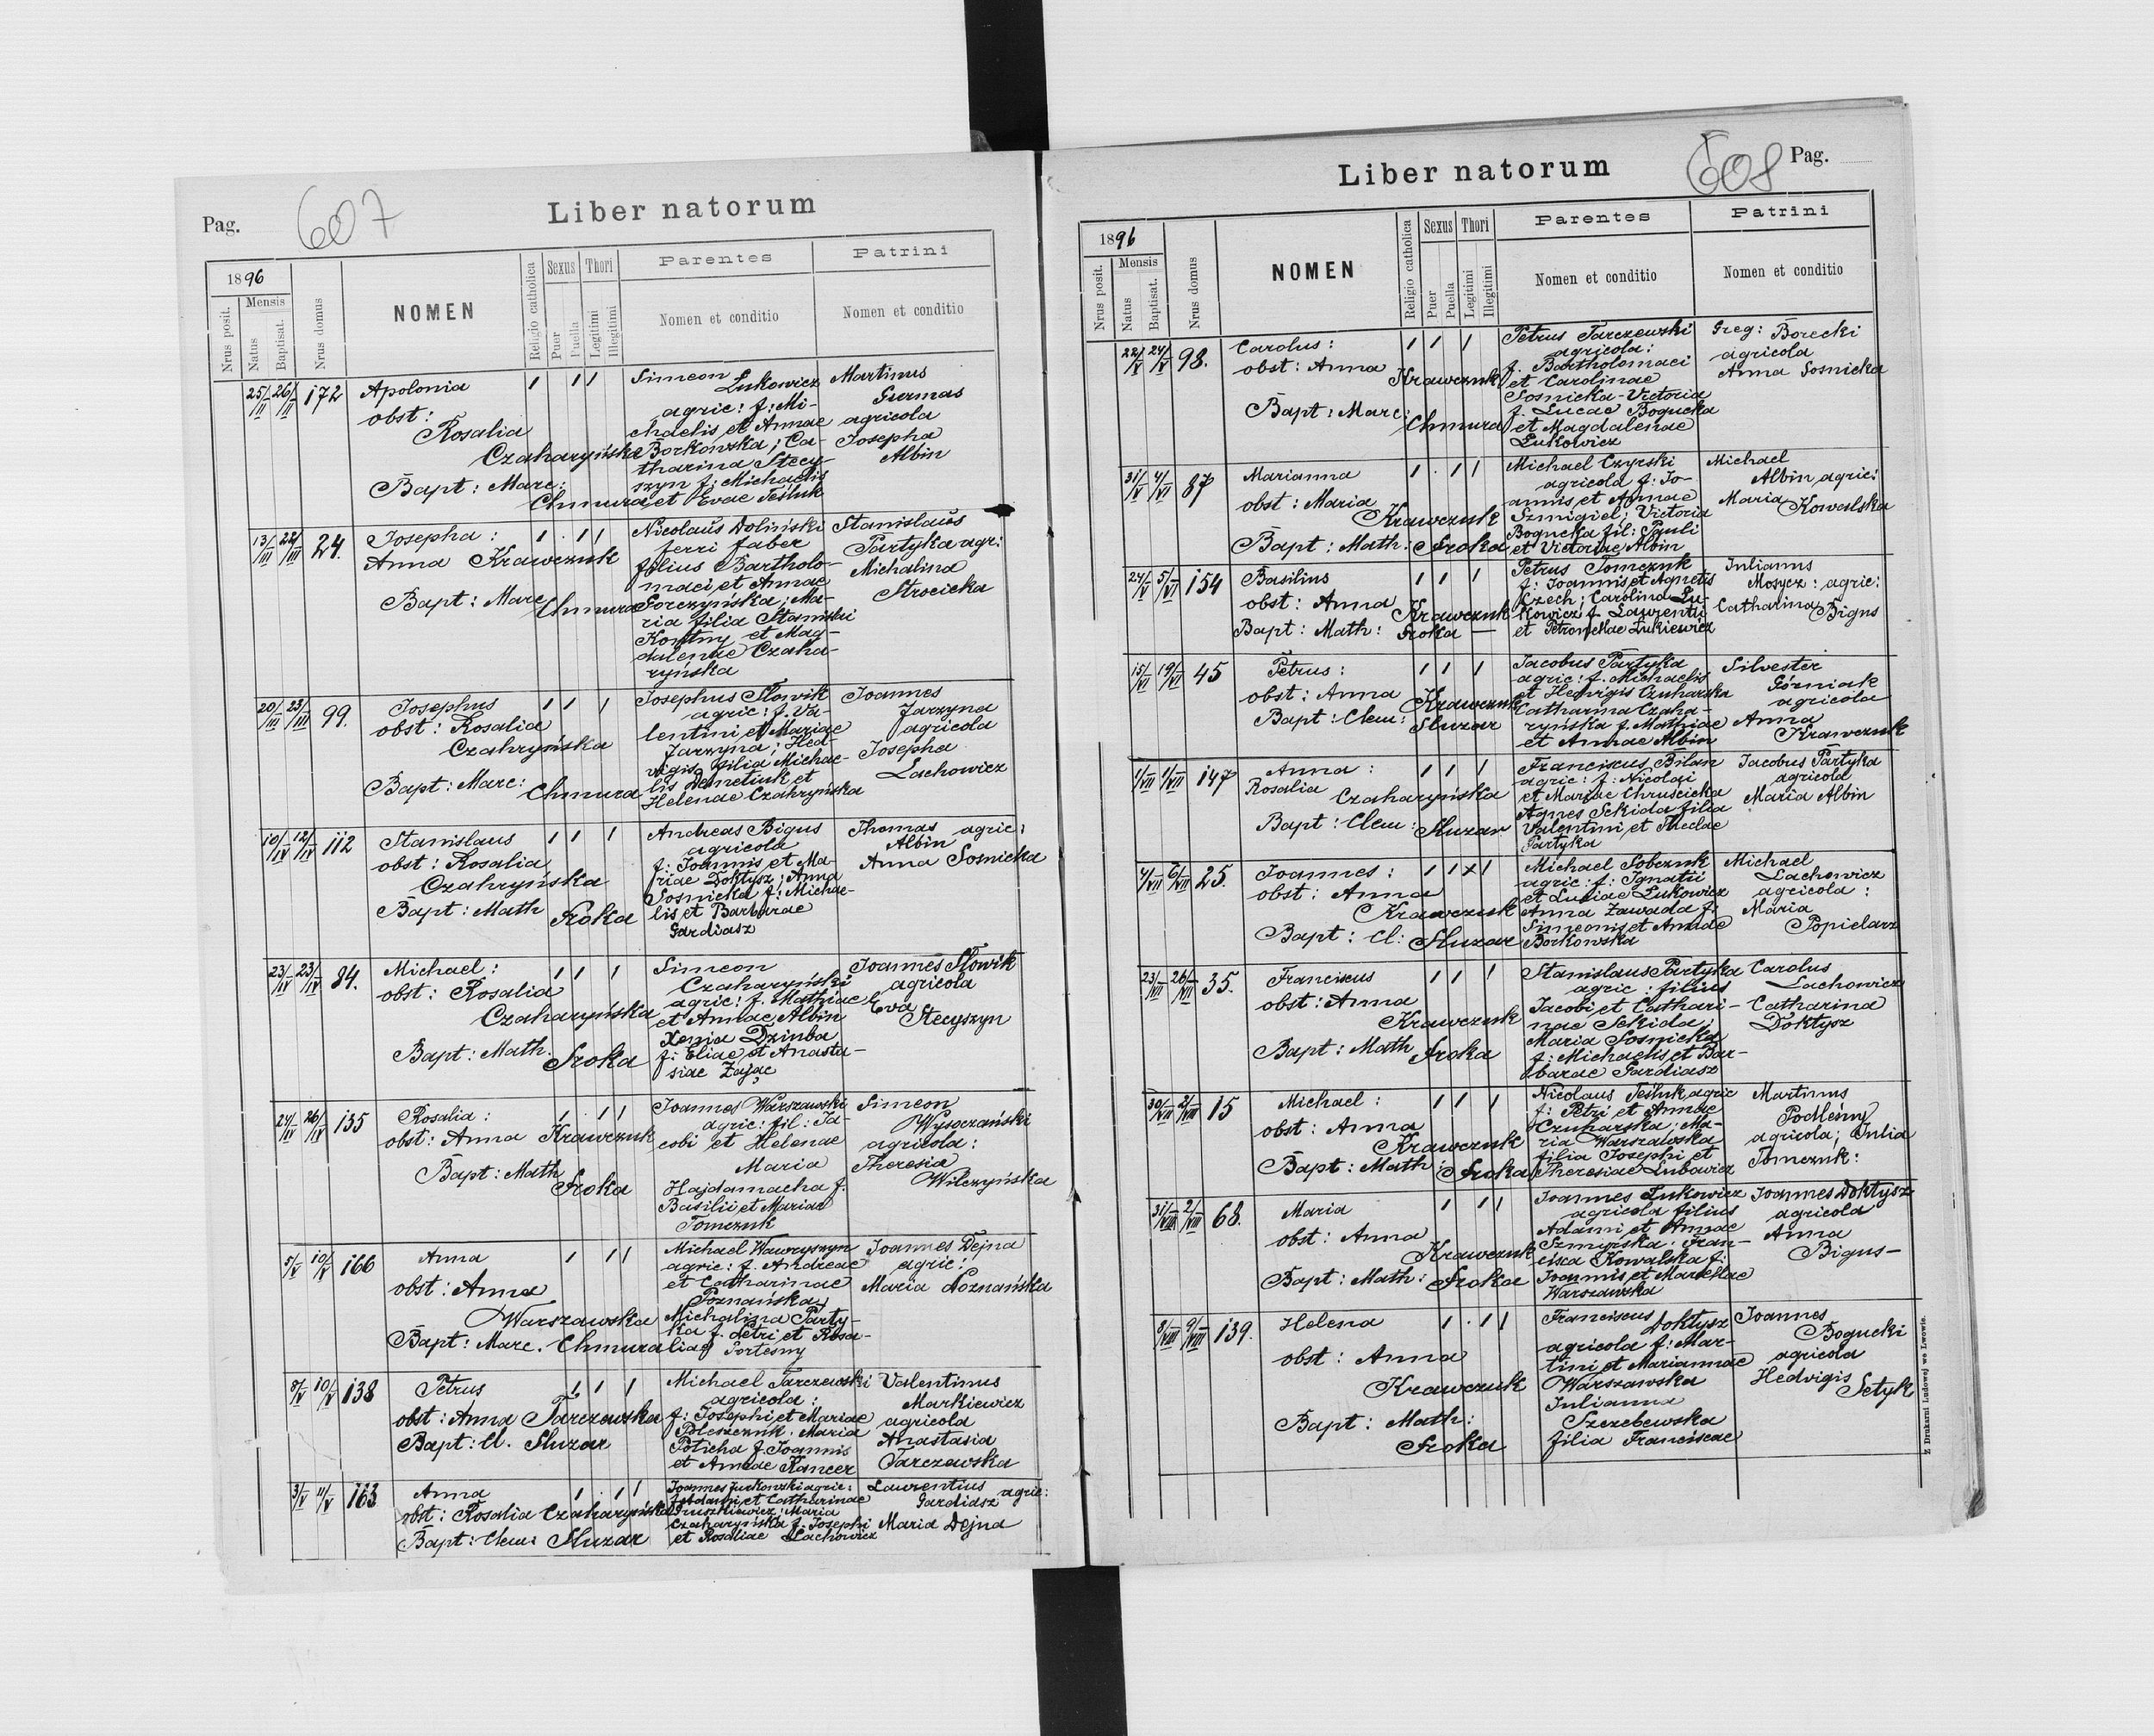 Pag.
607
Liber natorum
1896
Nrus posit.
Mensis
Natus
Baptisat.
Nrus domus
NOMEN
Religio catholica
Sexus
Puer
Puella
Thori
Legitimi
Illegitimi
Parentes
Nomen et conditio
Patrini
Nomen et conditio
25/II 26/II 172
Apolonia
obst:
Rosalia
Czaharyńska
Bapt: Marc:
Chmura
Simeon
Łukowicz
agric: f: Mi-
chaelis et Annae
Borkowska; Ca-
tharina Stecy-
szyn f: Michaelis
et Evae Teśluk
Martinus
Gurmas
agricola
Josepha
Albin
13/III 22/III 24.
Josepha:
Anna Krawczuk
Bapt: Marc
Chmura
Nicolaus Doliński
ferri faber
filius Bartholo-
maei et Annae
Gorczyńska; Ma-
ria filia Stanislai
Kontny et Mag-
dalenae Czaha-
ryńska
Stanislaus
Partyka agr:
Michalina
Strocicka
20/III 23/III 99.
Josephus
obst: Rosalia
Czahryńska
Bapt: Marc:
Chmura
Josephus Słowik
agric: f. Va-
lentini et Mariae
Jarzyna; Hed-
vigis filia Michae-
lis Demetiuk et
Helenae Czahryńska
Joannes
Jarzyna
agricola
Josepha
Lachowicz
10/IV 12/IV 112
Stanislaus
obst: Rosalia
Czahryńska
Bapt: Math
Sroka
Andreas Bigus
agricola
f: Joannis et Ma-
riae Doktysz; Anna
Sosnicka f: Michae-
lis et Barbarae
Gardiasz
Thomas agric:
Albin
Anna Sosnicka
23/IV 23/IV 84.
Michael:
obst: Rosalia
Czaharyńska
Bapt: Math.
Sroka
Simeon
Czaharyński
agric: f. Mathiae
et Annae Albin
Xenia Dziuba
f: Eliae et Anasta-
siae Zając
Joannes Słowik
agricola
Eva
Stecyszyn
24/IV 26/IV 135
Rosalia:
obst: Anna Krawczuk
Bapt: Math
Sroka
Joannes Warszawski
agric: fil: Ja-
cobi et Helenae
Maria
Hajdamacha f.
Basilii et Mariae
Tomczuk
Simeon
Wysoczański
agricola:
Theresia
Wilczyńska
5/V 10/V 166
Anna
obst: Anna
Warszawska
Bapt: Marc. Chmura
Michael Wawryszyn
agric: f. Andreae
et Catharinae
Poznańska
Michalina Party-
ka f. Petri et Rosa-
liae Portesny
Joannes Dejna
agric:
Maria Poznańska
8/V 10/V 138
Petrus
obst: Anna Tarczewska
Bapt: Cl. Sluzar
Michael Tarczewski
agricola:
f: Josephi et Mariae
Poleszczuk. Maria
Poticha f. Joannis
et Annae Kancer
Valentinus
Markiewicz
agricola
Anastasia
Tarczewska
3/V 11/V 163
Anna
obst: Rosalia Czaharyńska
Bapt: Clem: Sluzar
et Catharinae
Maria
Czaharyńska f. Josephi
et Rosaliae Lachowicz
Laurentius agric:
Gardiasz
Maria Dejna
Liber natorum
608
Pag.
1896
Nrus posit.
Mensis
Natus
Baptisat.
Nrus domus
NOMEN
Religio catholica
Sexus
Puer
Puella
Thori
Legitimi
Illegitimi
Parentes
Nomen et conditio
Patrini
Nomen et conditio
22/V 24/V 98.
Carolus:
obst: Anna
Krawczuk
Bapt: Marc:
Chmura
Petrus Tarczewski
agricola:
f. Bartholomaei
et Carolinae
Sosnicka - Victoria
f. Lucae Bogucka
et Magdalenae
Łukowicz
Greg: Borecki
agricola
Anna Sosnicka
31/V 4/VI 87
Marianna
obst: Maria
Krawczuk
Bapt: Math: Sroka
Michael Czyrski
agricola f: Jo-
annis et Annae
Szmigiel; Victoria
Bogucka fil: Pauli
et Victoriae Albin
Michael
Albin agric:
Maria Kowalska
24/V 5/VI 154
Basilius
obst: Anna
Krawczuk
Bapt: Math: Sroka —
Petrus Tomczuk
f: Joannis et Agnetis
Czech; Carolina Łu-
kowicz f. Laurenti
et Petronellae Łukiewicz
Julianus
Mosycz: agric:
Catharina Bigus
15/VI 19/VI 45
Petrus:
obst: Anna
Krawczuk
Bapt: Clem: Sluzar
Jacobus Partyka
agric: f. Michaelis
et Hedvigis Czuharska
Catharina Czaha-
ryńska f. Mathiae
et Annae Albin
Silvester
Górniak
agricola
Anna
Krawczuk
1/VII 1/VII 147
Anna:
Rosalia
Czaharyńska
Bapt: Clem: Sluzar
Franciscus Bilan
agric: f: Nicolai
et Mariae Chruscicka
Agnes Sekida filia
Valentini et Theclae
Partyka
Jacobus Partyka
agricola
Maria Albin
4/VII 6/VII 25.
Joannes:
obst: Anna
Krawczuk
Bapt: Cl: Sluzar
Michael Sobczuk
agric: f: Ignatii
et Luciae Łukowicz
Anna Zawada f:
Simeonis et Annae
Borkowska
Michael
Lachowicz
agricola:
Maria
Popielarz
23/VII 26/VII 35.
Franciscus
obst: Anna
Krawczuk
Bapt: Math Sroka
Stanislaus Partyka
agric: filius
Jacobi et Cathari-
nae Sekida;
Maria Sosnicka
f: Michaelis et Bar-
barae Gardiasz
Carolus
Lachowicz
Catharina
Doktysz
30/VII 2/VIII 15
Michael:
obst: Anna
Krawczuk
Bapt: Math: Sroka
Nicolaus Teśluk agric
f: Petri et Annae
Czuharska; Ma-
ria Warszawska
filia Josephi et
Theresiae Lubowicz
Martinus
Podleśny
agricola; Julia
Tomczuk:
31/VII 2/VIII 68.
Maria
obst: Anna
Krawczuk
Bapt: Math: Sroka
Joannes Łukowicz
agricola filius
Adami et Annae
Szmyrska. Fran-
cisca Kowalska f:
Joannis et Marcellae
Warszawska
Joannes Doktysz
agricola
Anna
Bigus —
8/VIII 9/VIII 139.
Helena
obst: Anna
Krawczuk
Bapt: Math:
Sroka
Franciscus
Doktysz
agricola f: Mar-
tini et Mariannae
Warszawska
Julianna
Szczebewska
filia Franciscae
Joannes
Bogucki
agricola
Hedvigis
Setyk
Z Drukarni Ludowej we Lwowie.